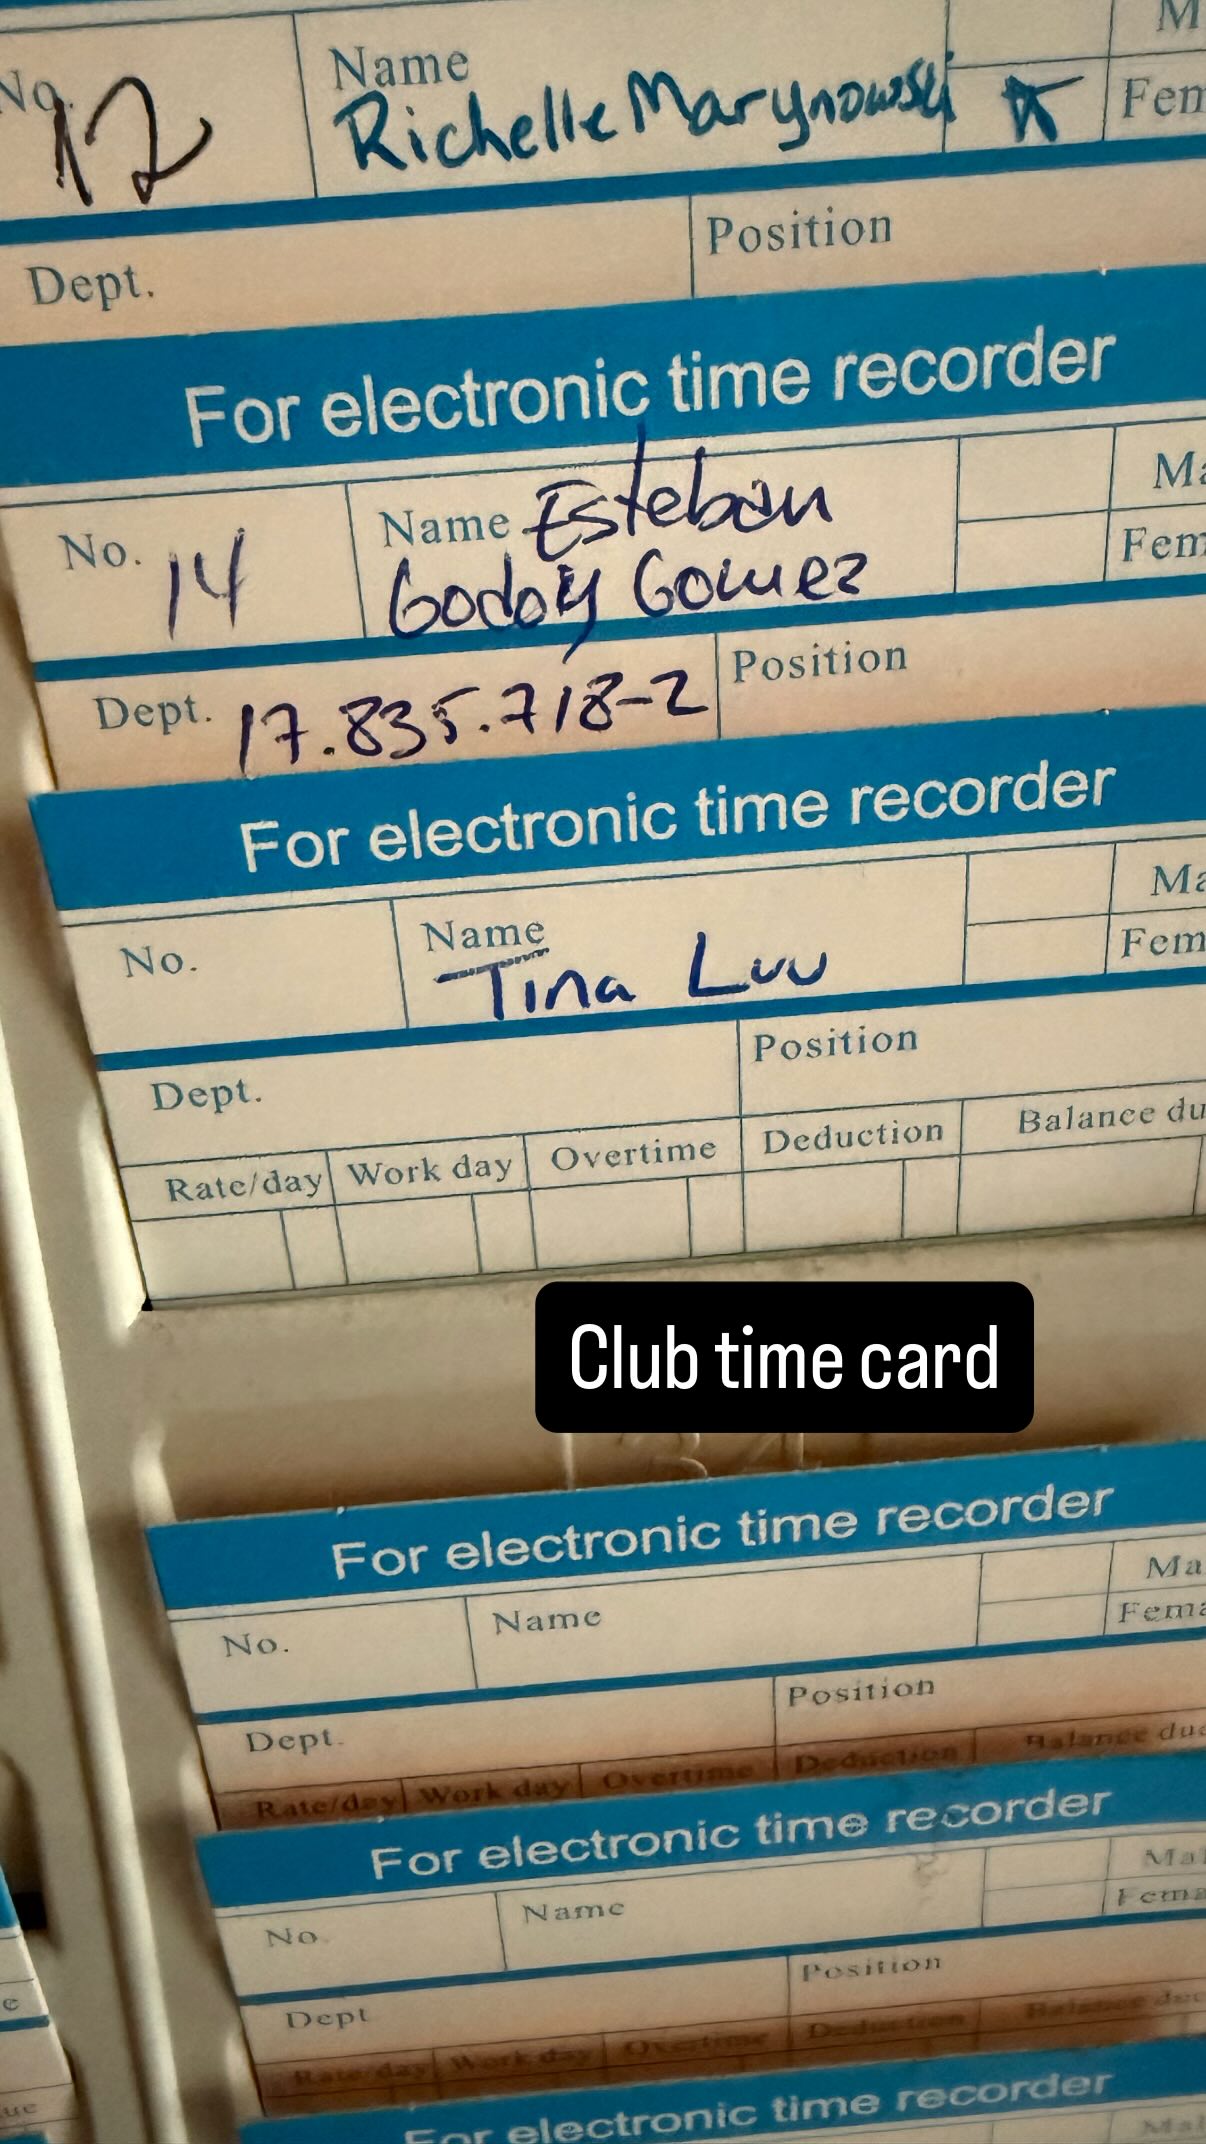 No. 12
Name
Richelle Marynowski
Dept.
Position
For electronic time recorder
No. 14
Name Esteban
Godoy Gomez
Dept. 17.835.718-2
Position
For electronic time recorder
No.
Name
Tina Luu
Dept.
Position
Rate/day Work day Overtime Deduction Balance
Club time card
For electronic time recorder
No.
Name
Dept.
Position
Rate/day Work day Overtime Deduction Balance due
For electronic time recorder
No
Name
Dept
Position
Rate/day Work day Overtime Deduction Balance due
For electronic time recorder